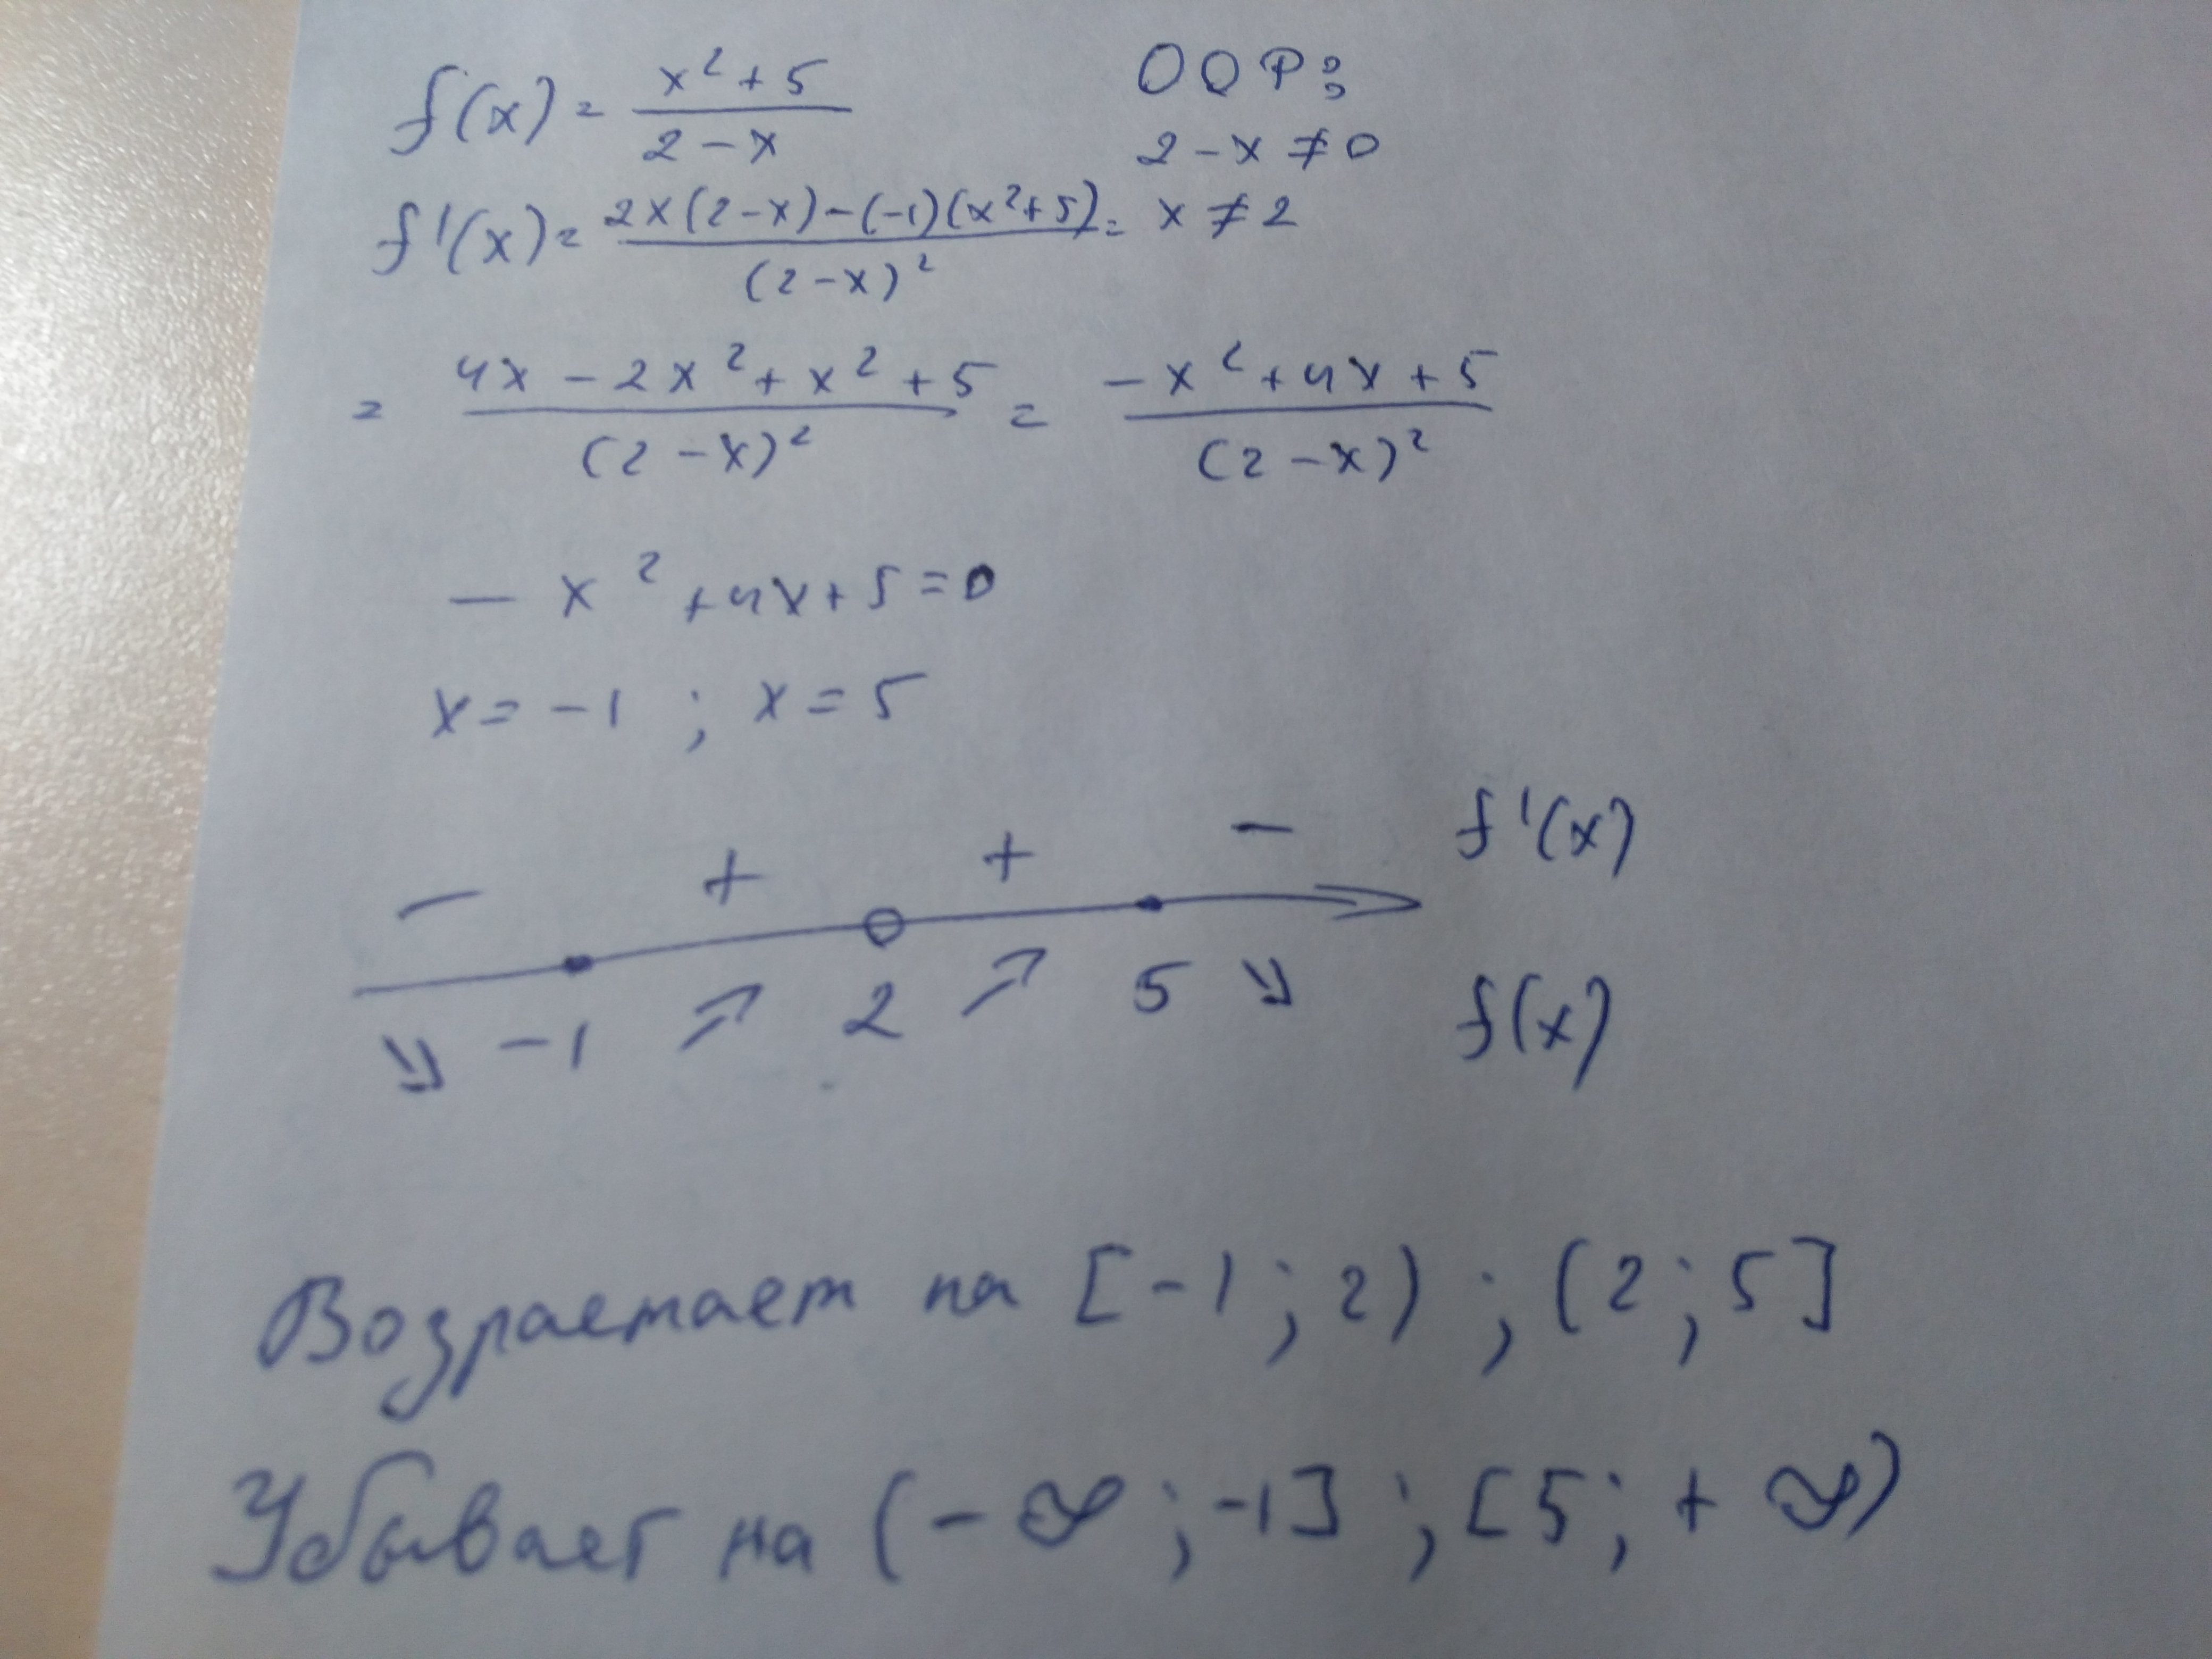 f(x) = (x² + 5)/(2 - x)
ООФ:
2 - x ≠ 0
f'(x) = (2x(2-x) - (-1)(x²+5))/(2-x)² =
x ≠ 2
= (4x - 2x² + x² + 5)/(2-x)² = (-x² + 4x + 5)/(2-x)²
- x² + 4x + 5 = 0
x = -1 ; x = 5
- + + - f'(x)
↘ -1 ↗ 2 ↗ 5 ↘ f(x)
Возрастает на [-1; 2) ; (2; 5]
Убывает на (-∞; -1] ; [5; +∞)